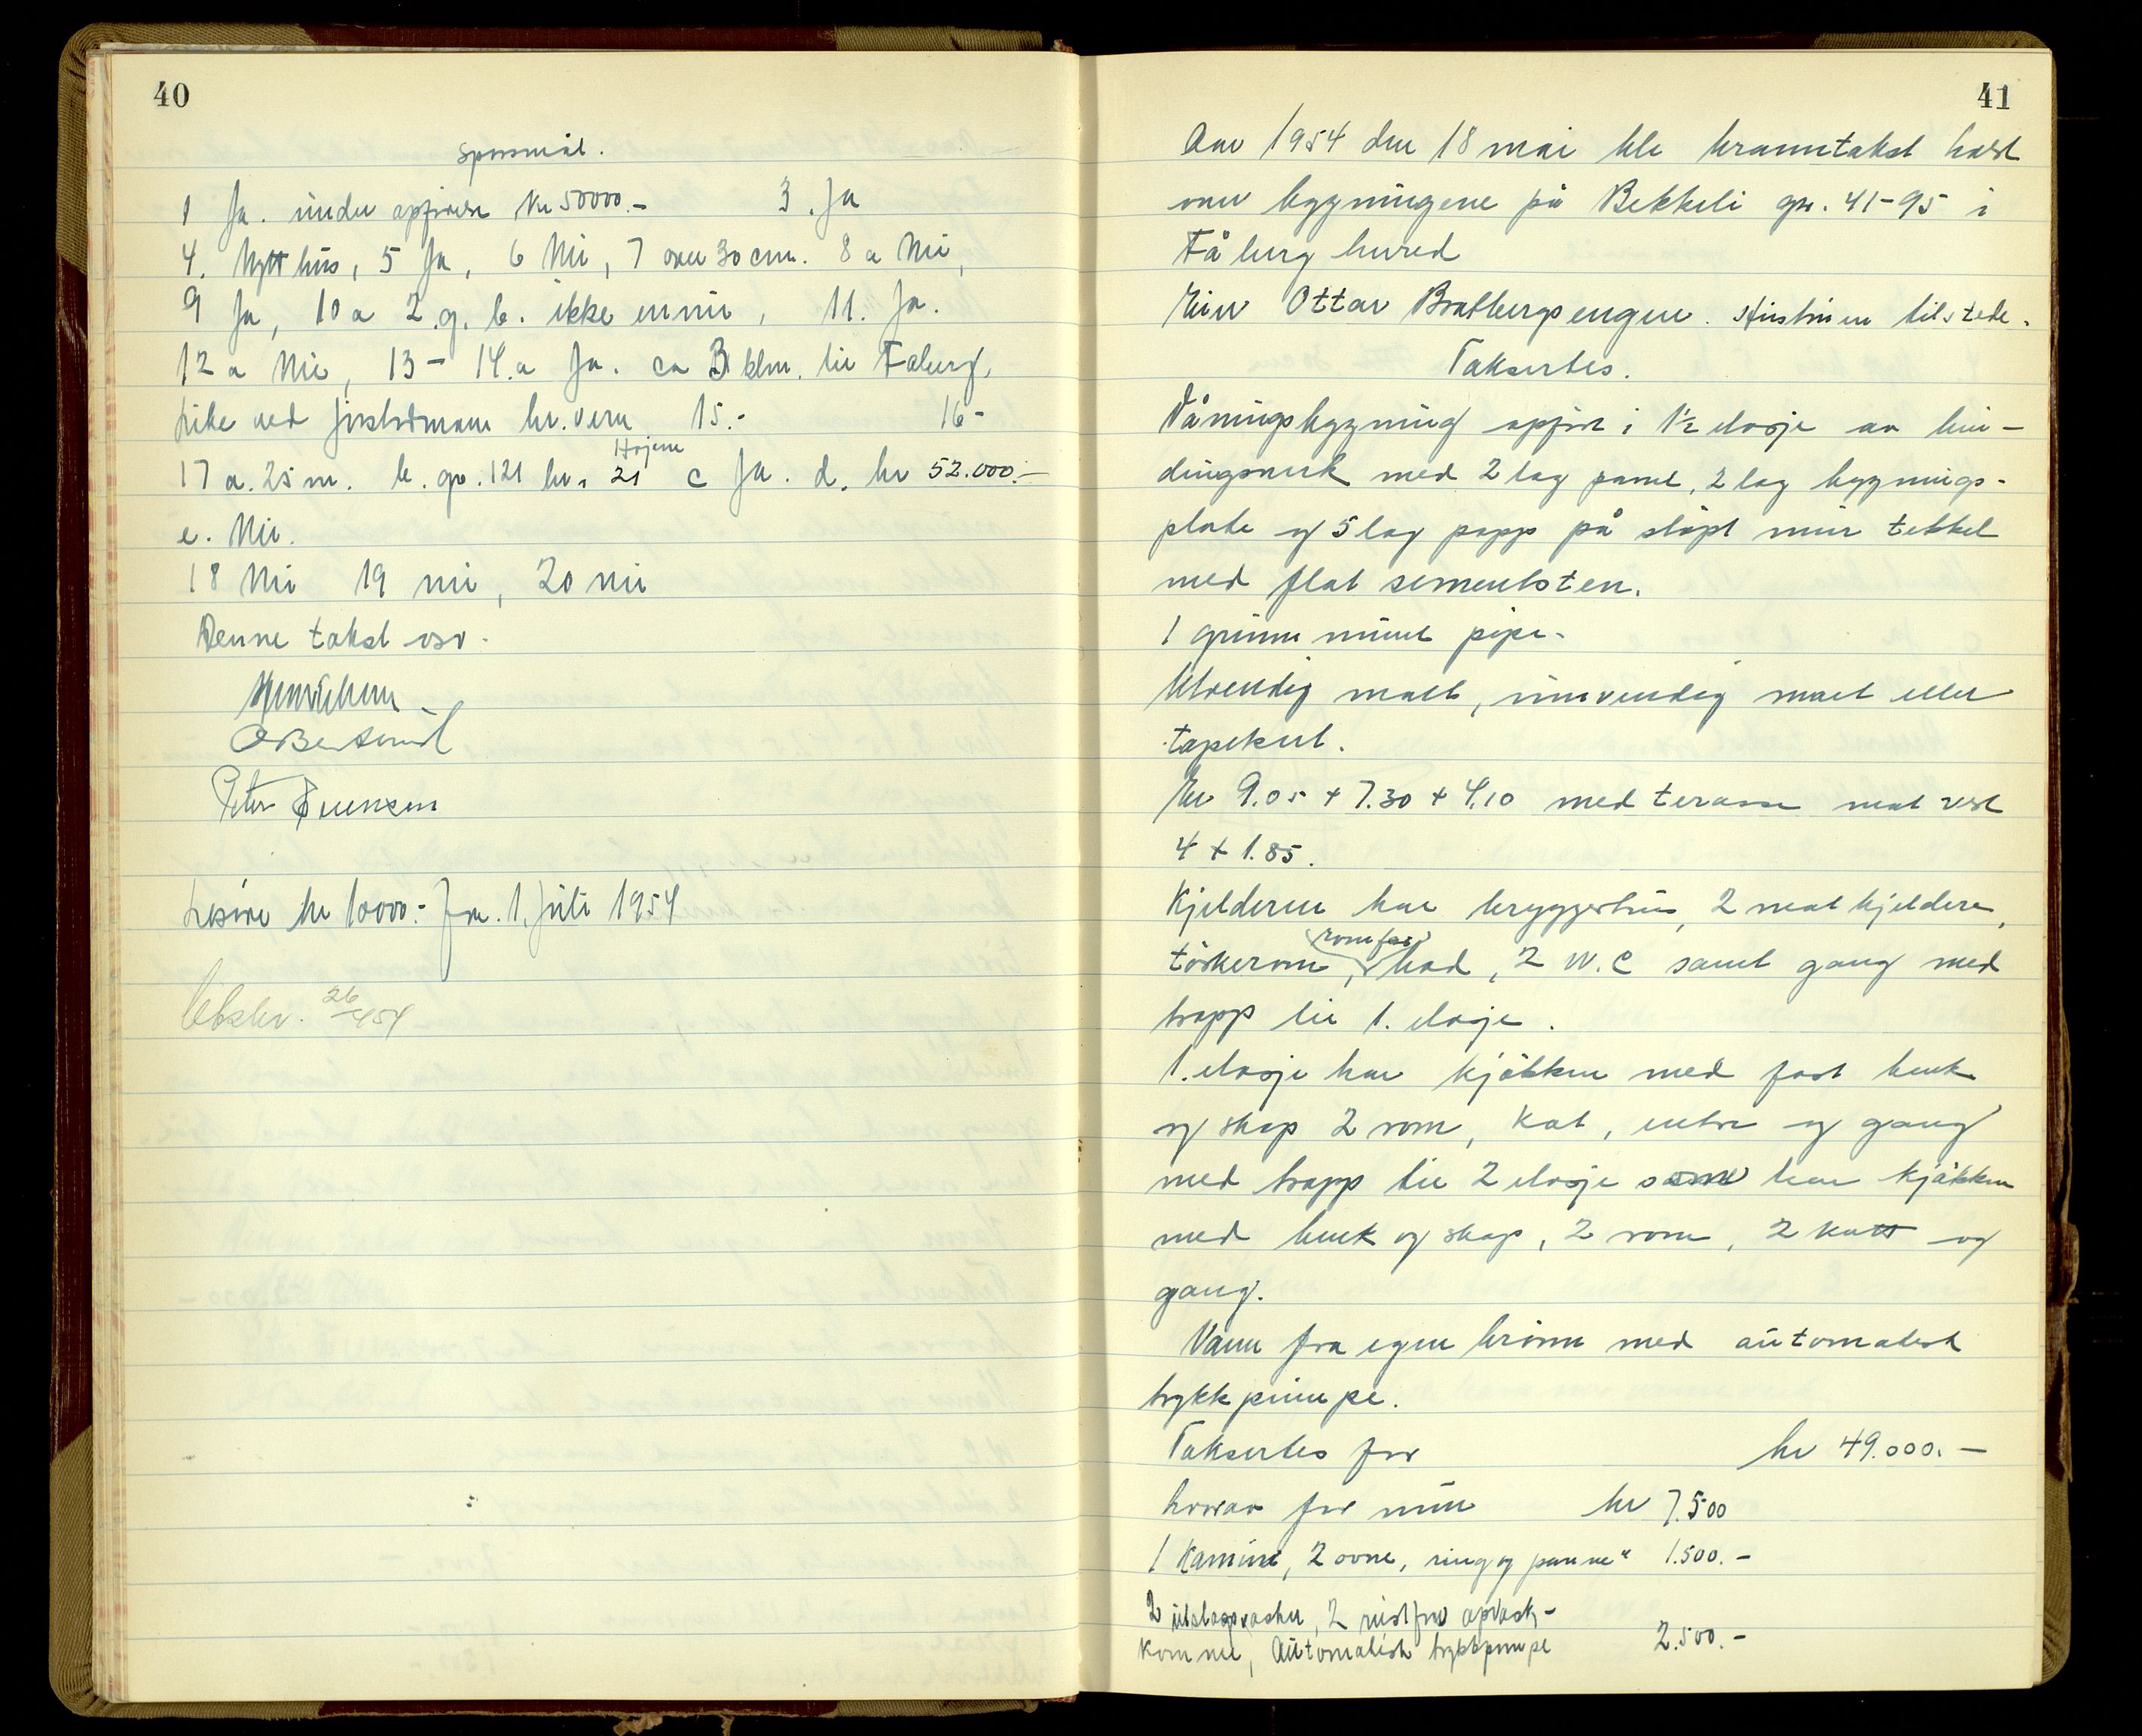 40
Spørsmål.
1 Ja. under opførelse Kr 50000.- 3. Ja
4. Nytt hus, 5 Ja, 6 Nei, 7 over 30 cm. 8 a Nei,
9 Ja, 10 a 2. g. b. ikke ennu, 11. Ja.
12 a Nei, 13 - 14.a Ja. ca 3 klm. til Fåberg,
Like ved br. vern 15.- 16-
Hojem
17 a. 25 m. b. gr. 121 br. 21 c Ja. d. kr 52.000.-
e. Nei.
18 Nei 19 nei, 20 nei
Denne takst osv.
Peter Svensen
Lösöre kr 10000.- Fra. 1. Juli 1954
Utskr. 26/4 54
41
Aar 1954 den 18 mai ble branntakst holdt
over bygningene på Bekkeli gr. 41-95 i
Fåberg herred
Eier Ottar Bratbergsengen. Hustruen tilstede.
Taksertes.
Våningsbygning opfört i 1½ etasje av bin-
dingsverk med 2 lag panel, 2 lag bygnings-
plate og 5 lag papp på støpt mur tekket
med flat sementsten.
1 grunn muret pipe.
Utvendig malt, innvendig malt eller
tapetsert.
Er 9.05 + 7.30 + 4.10 med terasse mot vest
4 + 1.85.
Kjelderen har bryggerhus, 2 mat kjeldere,
rom for
törkerom, bad, 2 W.C samt gang med
trapp til 1. etasje.
1. etasje har kjökken med fast benk
og skap 2 rom, kot, entre og gang
med trapp til 2 etasje som har kjökken
med benk og skap, 2 rom, 2 kott og
gang.
Vann fra egen brönn med automatisk
trykkpumpe.
Taksertes for kr 49.000.-
hvorav for mur kr 7.500
1 Kamin, 2 ovne, ring og panne " 1.500.-
2 utslagsvasker, 2 rustfrie opvask-
kommer, Automatisk trykkpumpe 2.500.-